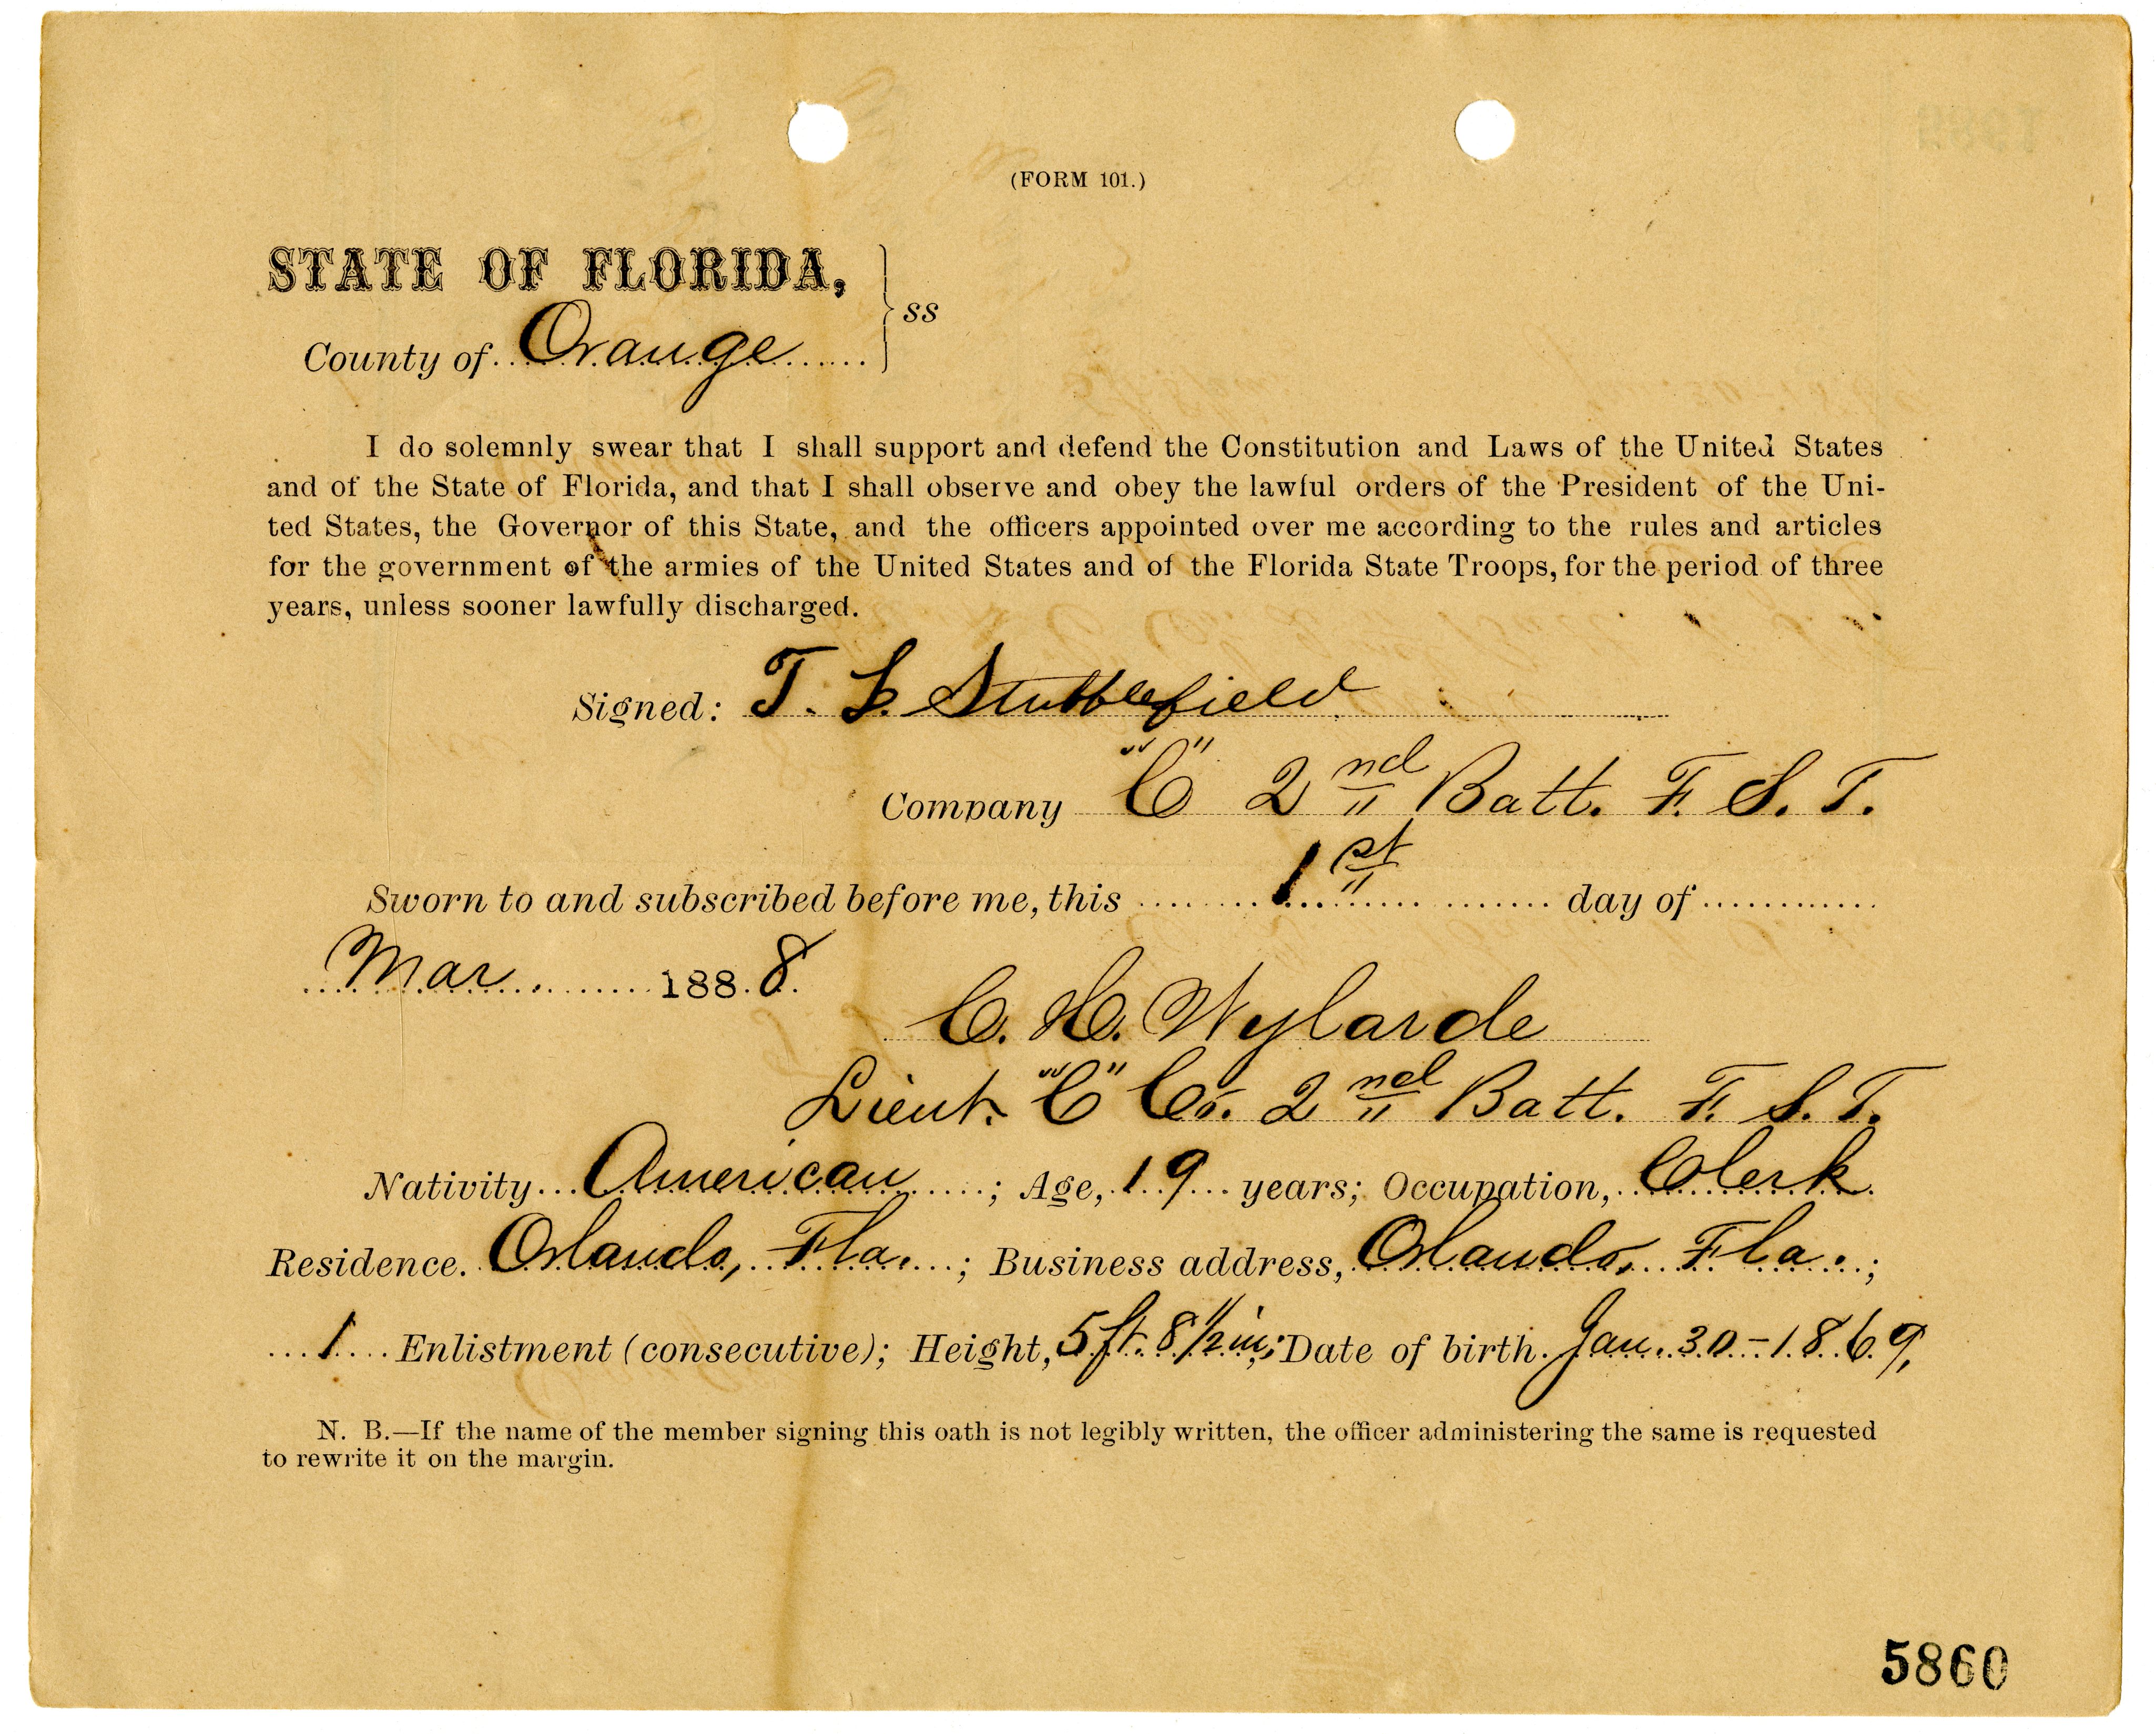 (FORM 101.)
STATE OF FLORIDA,
ss
County of Orange
I do solemnly swear that I shall support and defend the Constitution and Laws of the United States
and of the State of Florida, and that I shall observe and obey the lawful orders of the President of the Uni-
ted States, the Governor of this State, and the officers appointed over me according to the rules and articles
for the government of the armies of the United States and of the Florida State Troops, for the period of three
years, unless sooner lawfully discharged.
Signed: T. L. Stubblefield
Company "C" 2nd Batt. F. S. T.
Sworn to and subscribed before me, this 1st day of
Mar. 1888.
C. H. Wylarde
Lieut. "C" Co. 2nd Batt. F. S. T.
Nativity American; Age, 19 years; Occupation, Clerk
Residence. Orlando, Fla.; Business address, Orlando, Fla.;
1 Enlistment (consecutive); Height, 5 ft. 8 1/2 in; Date of birth. Jan. 30-1869,
N. B.—If the name of the member signing this oath is not legibly written, the officer administering the same is requested
to rewrite it on the margin.
5860